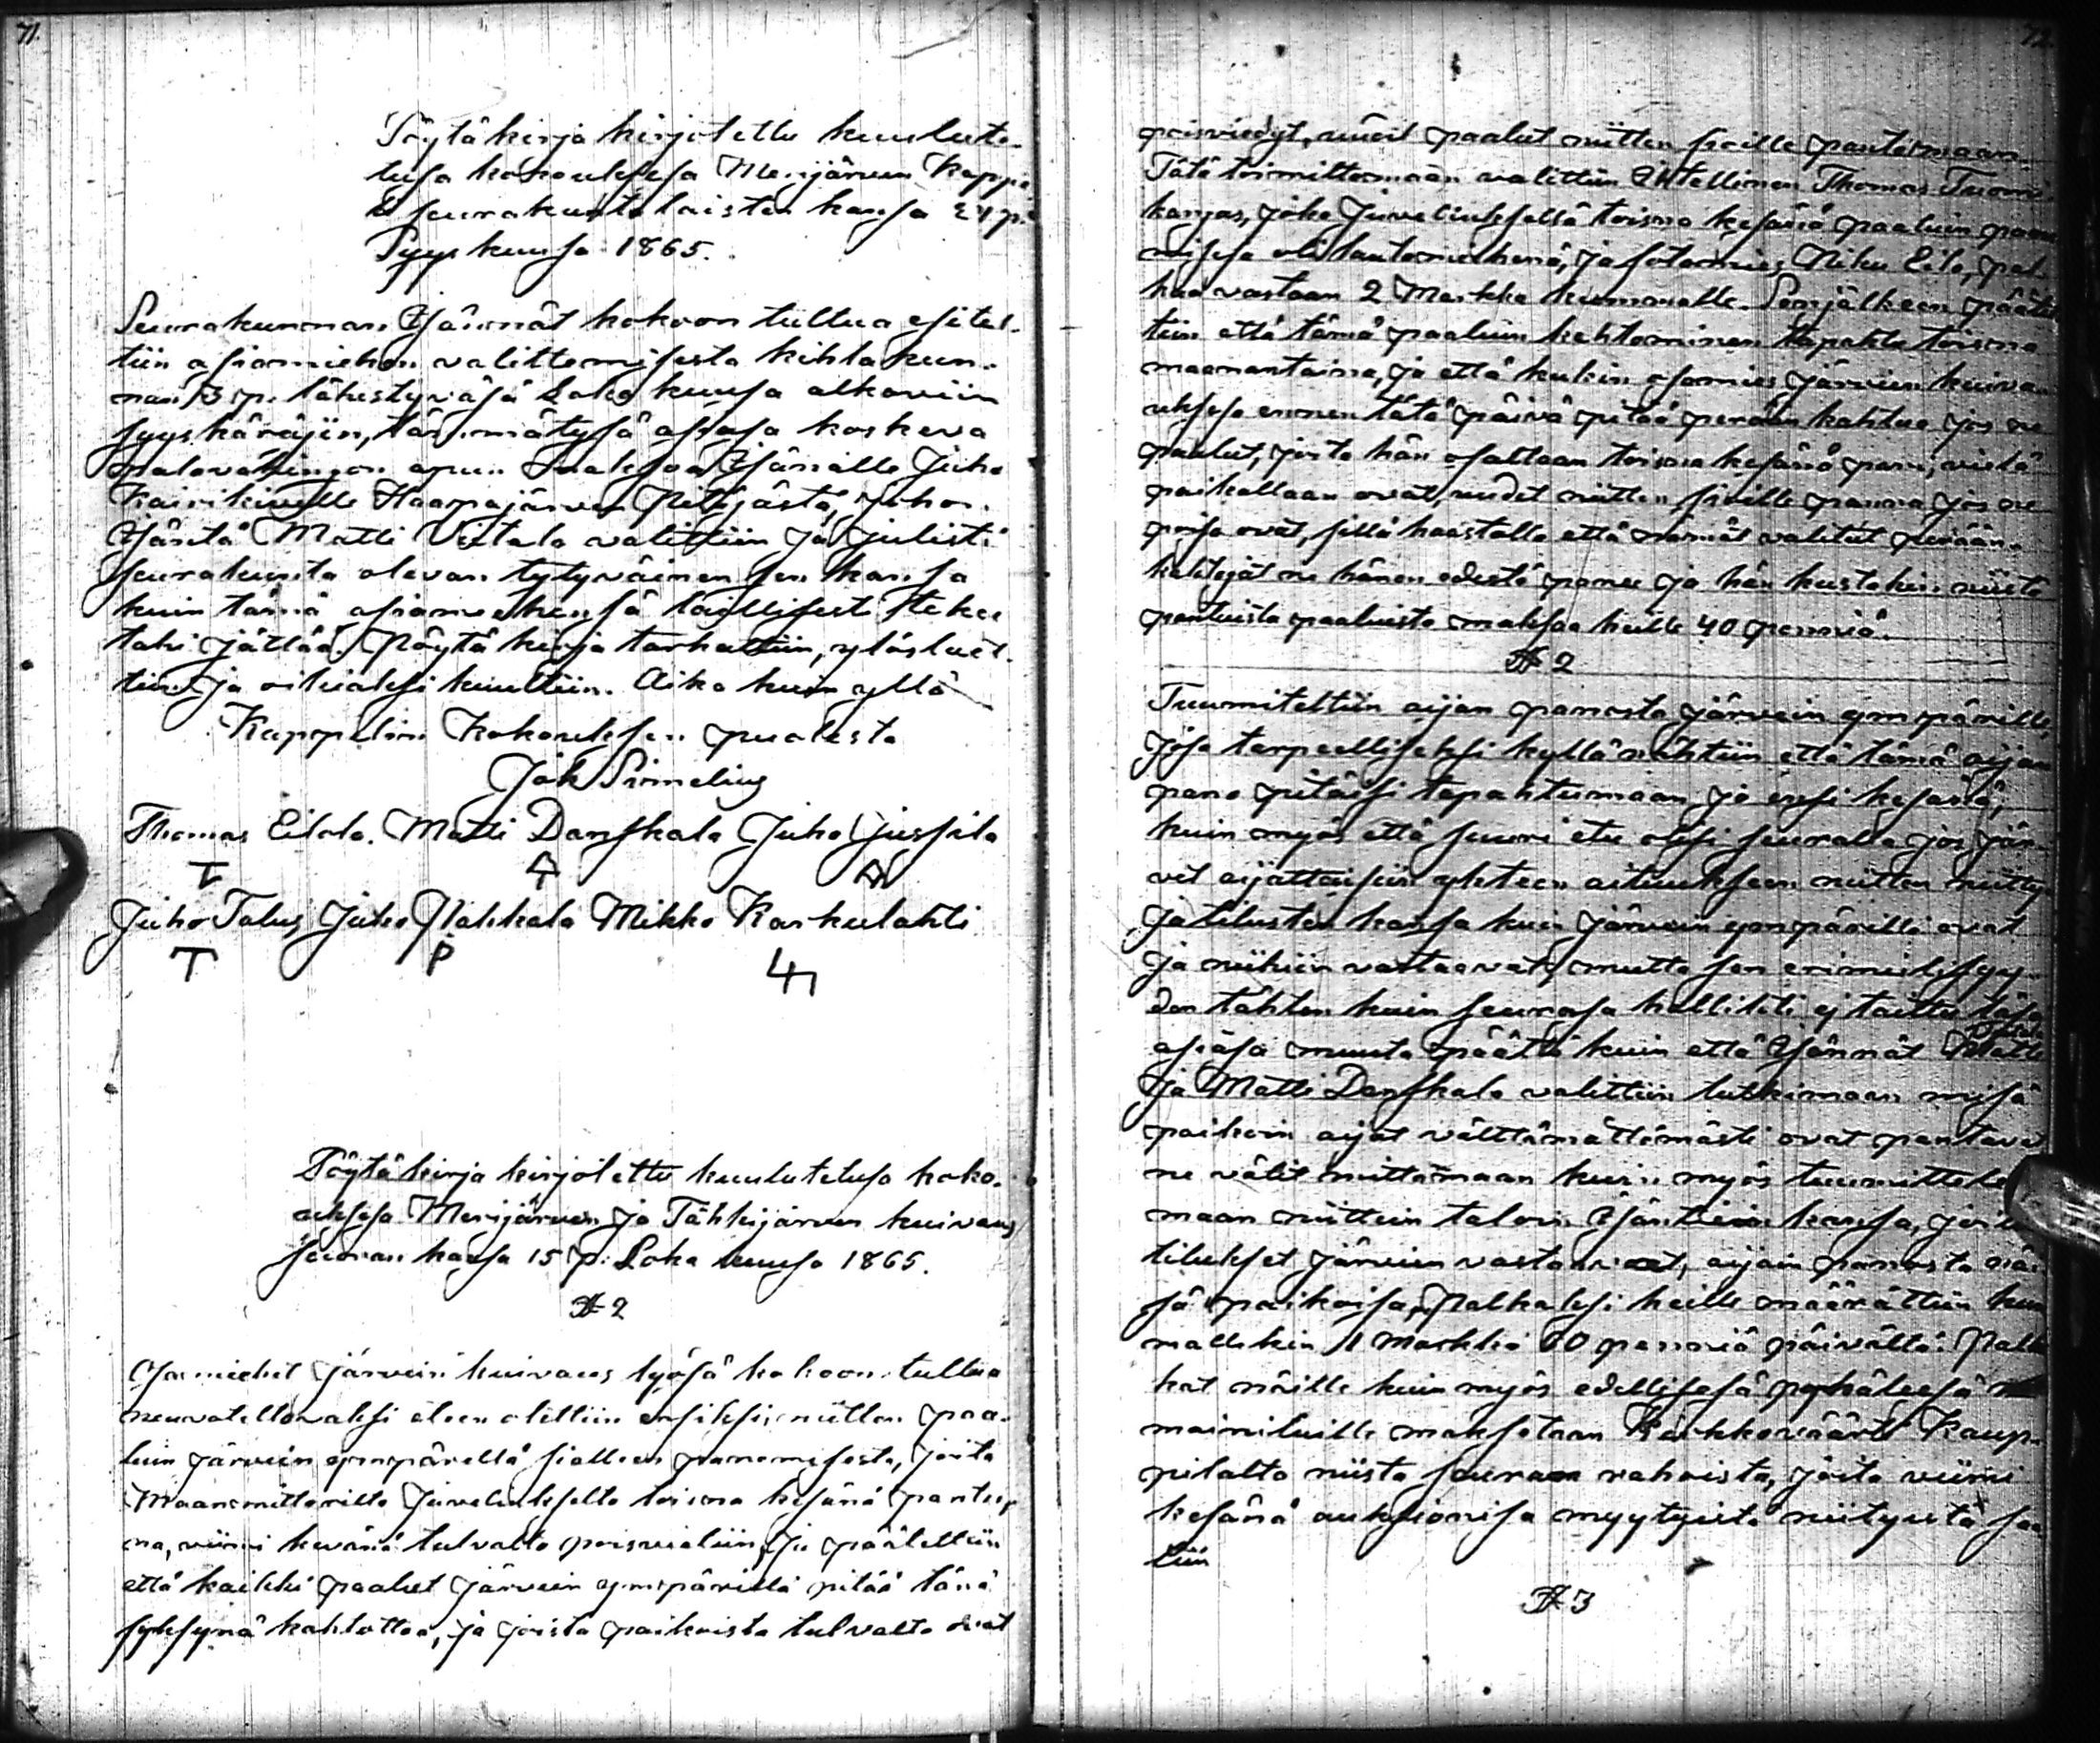 71.
Pöytäkirja kirjotettu kuulute-
tusa kokouksesa Merijärven Kappe
li seurakuntalaisten kansa 24 p:
Syyskuusa 1865.
Seurakunnan Isännät kokoon tultua esitel-
tiin asiamiehen valittemisesta kihlakun-
nan 3 p. lähestyväsä Lokakuusa alkaviin
syyskäräjiin, tän mätysä asiasa koskeva
palovahingon apun maksoa Isännälle Juho
Kairikivelle Haapajärven Pitäjästä, johon
Isäntä Matti Viitala valittiin ja julisti
seurakunta olevan tytyväinen sen kansa
kuin tämä asiamiehensä laillisesti tekee
tahi jättää. Pöytäkirja tarkattiin, ylösluet-
tiin ja oikiaksi kuultiin. Aika kuin yllä
Kappelin Kokouksen puolesta
Jak Simelius
Thomas Eilola. Matti Danskala Juho Jussila
Juho Talus Juho Pahkala Mikko Karkulahti
T P
Pöytäkirja kirjotettu kuulutetusa koko-
uksesa Merijärven ja Tähkijärven kuivaus
seuran kansa 15 p: Lokakuusa 1865.
§ 2
Osamiehet järvein kuivaus työsä kokoon tultua
neuvoteltavaksi eteen otettiin ensiksi niitten paa-
luin järvein ympärellä sialleen panemisesta, joita
Maanmittarilta Juveliukselta toisna kesänä pantu
na, viimi kevänä tulvalta poisvietiin, ja päätettiin
että kaikki paalut järvein ympärillä pitää tänä
syksynä kahtottaa, ja joista paikoista tulvalta ovat
72.
poisviedyt, uudet paalut niitten sialle pantamaan.
Tätä toimittamaan valittiin Itellinen Thomas Tuomi-
kangas, joka Juveliuksella toisna kesänä paaluin pane
misesa oli lautamiehenä, ja sotamies Niku Eilo, pal-
kaa vastaan 2 Markka kummalle. Senjälkeen päätet
tiin että tämä paaluin kahtominen tapahtu toisna
maanantaina, ja että kukin osamies järvein kuiva-
uksesa ennen tätä päivä pitää perään kahtua jos ne
paalut, joita hän osaltaan toisna kesänä pani, vielä
paikallaan ovat, uudet niitten sialle panna jos ne
poisa ovat, sillä haastolla että nämät valitut perään-
kahtojat ne hänen edestä panee ja hän kustakin niistä
pantuista paaluista maksaa heille 40 penniä.
§ 2
Tuumiteltiin aijan panosta järvein ympärille,
josa tarpeelliseksi kyllä nähtiin että tämä aijan
pano pitäisi tapahtumaan jo ensi kesänä,
kuin myös että suuri etu olisi seuralle jos jär-
vet aijattaisiin yhteen aituukseen niitten niitty
ja tilusten kansa kuin järvein ympärillä ovat
ja niihin vastaavat, mutta sen erimielisyy-
den tähten kuin seurasa hallitsi ej taittu täsä
asiasa muuta päättä kuin että Isännät
ja Matti Danskala valittiin tutkimaan misä
paikoin aijat välttämättömästi ovat pantavat
ne välit mittamaan kuin myös tuumittele
maan niittein taloin Isäntein kansa, joitten
tilukset järvein vastaavat, aijain panosta näi-
sä paikoisa, Palkaksi heille määrättiin kum
mallekin 1 Markka 60 penniä päivältä. Pal
kat näille kuin myös edellisesä pyhäleesä
mainituille maksetaan Kirkkoväärti Kaup-
pilalta niistä seuran rahoista, joita viimi
kesänä auksionisa myytyistä niityistä saa
tiin
§ 3